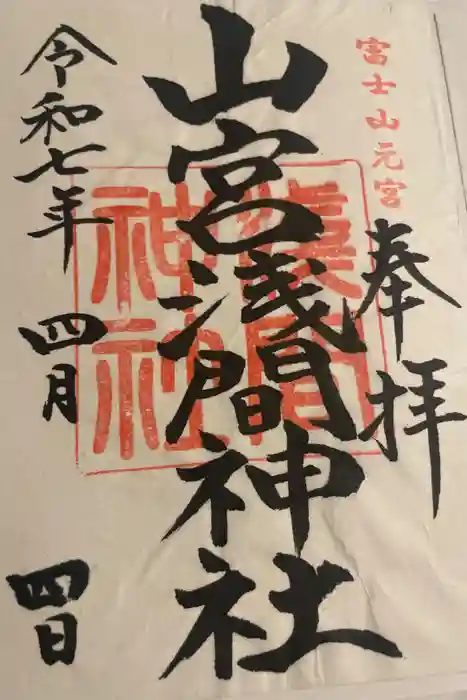 富士山元宮
奉拝
山宮浅間神社
浅間
神社
令和七年 四月 四日